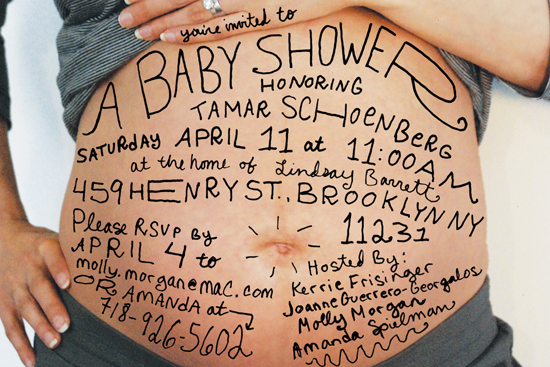 you're invited to
A BABY SHOWER
HONORING
TAMAR SCHOENBERG
SATURDAY APRIL 11 at 11:00 AM
at the home of Lindsay Barrett
459 HENRY ST., BROOKLYN NY
11231
Please RSVP by
APRIL 4 to
molly.morgan@mac.com
OR AMANDA at
718-926-5602
Hosted By:
Kerrie Frisinger
Joanne Guerrero-Georgalos
Molly Morgan
Amanda Spielman